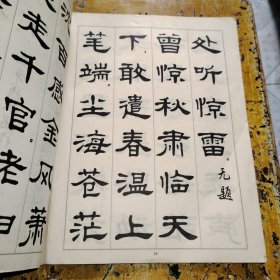 处听惊雷。
无题
曾惊秋肃临天
下，敢遣春温上
笔端。尘海苍茫
沉百感，金风萧
走千官。老归